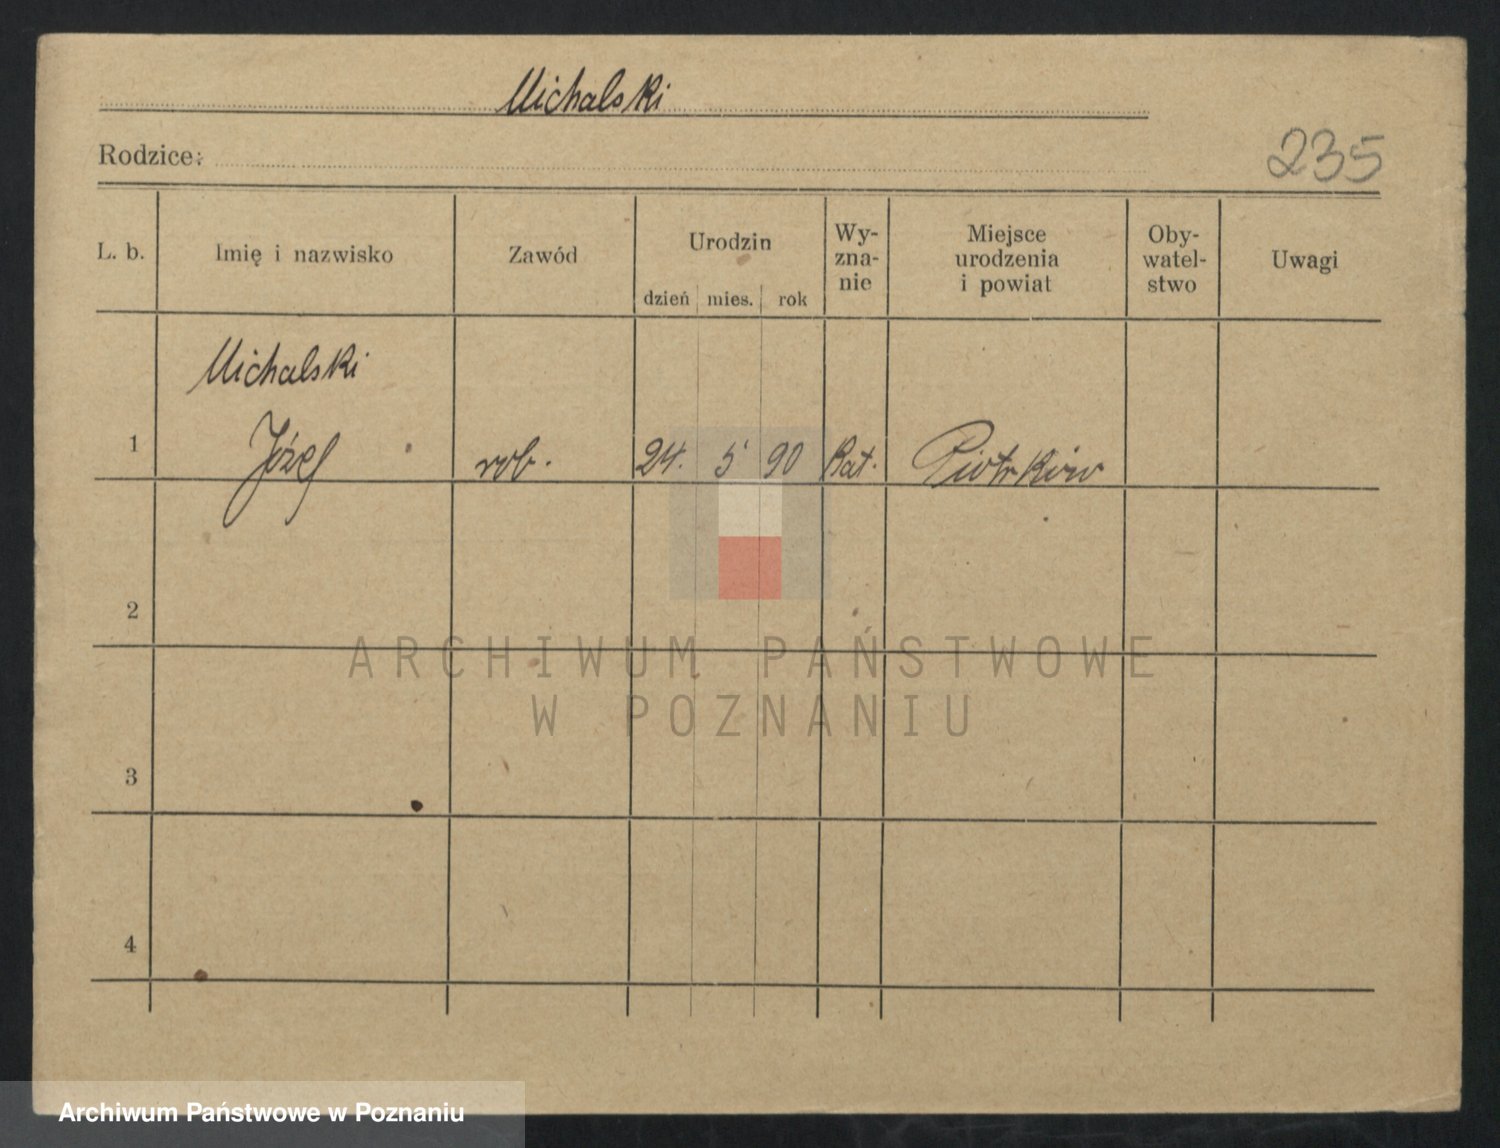 Michalski
Rodzice:
235
L. b.
Imię i nazwisko
Zawód
Urodzin
dzień
mies.
rok
Wy-
zna-
nie
Miejsce
urodzenia
i powiat
Oby-
watel-
stwo
Uwagi
Michalski
1 Józef rob. 24. 5 90 Kat. Piotrków
2
ARCHIWUM PAŃSTWOWE
W POZNANIU
3
4
Archiwum Państwowe w Poznaniu